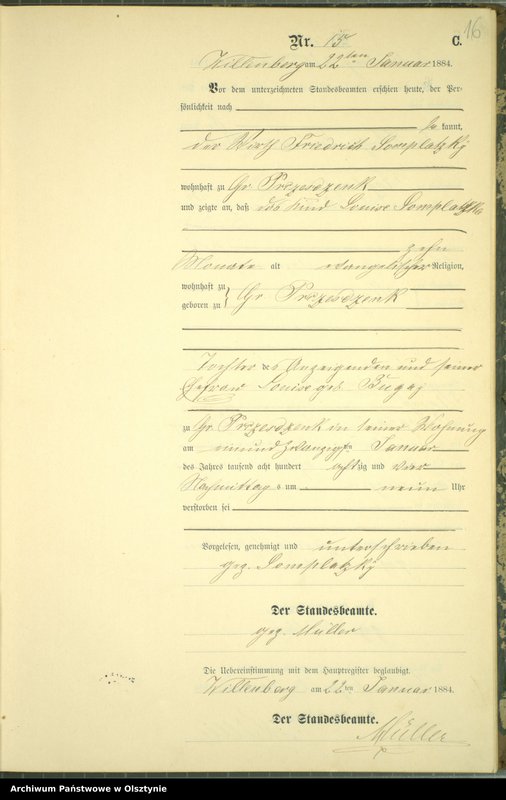 16
Nr. 15 C.
Willenberg am 22ten Januar 1884.
Vor dem unterzeichneten Standesbeamten erschien heute, der Per-
sönlichkeit nach
be kannt,
der Wirth Friedrich Somplatzky
wohnhaft zu Gr. Przesdzenk
und zeigte an, daß das Kind Louise Somplatzka
zehn
Monate alt evangelischer Religion,
wohnhaft zu
geboren zu } Gr Przesdzenk
Tochter des Anzeigenden und seiner
Ehefrau Louise geb. Bugay
zu Gr. Przesdzenk in seiner Wohnung
am einundzwanzigsten Januar
des Jahres tausend acht hundert achtzig und vier
Nachmittags um neun Uhr
verstorben sei
Vorgelesen, genehmigt und unterschrieben
gez. Somplatzky
Der Standesbeamte.
gez. Müller
Die Uebereinstimmung mit dem Hauptregister beglaubigt.
Willenberg am 22ten Januar 1884.
Der Standesbeamte.
Müller
Archiwum Państwowe w Olsztynie